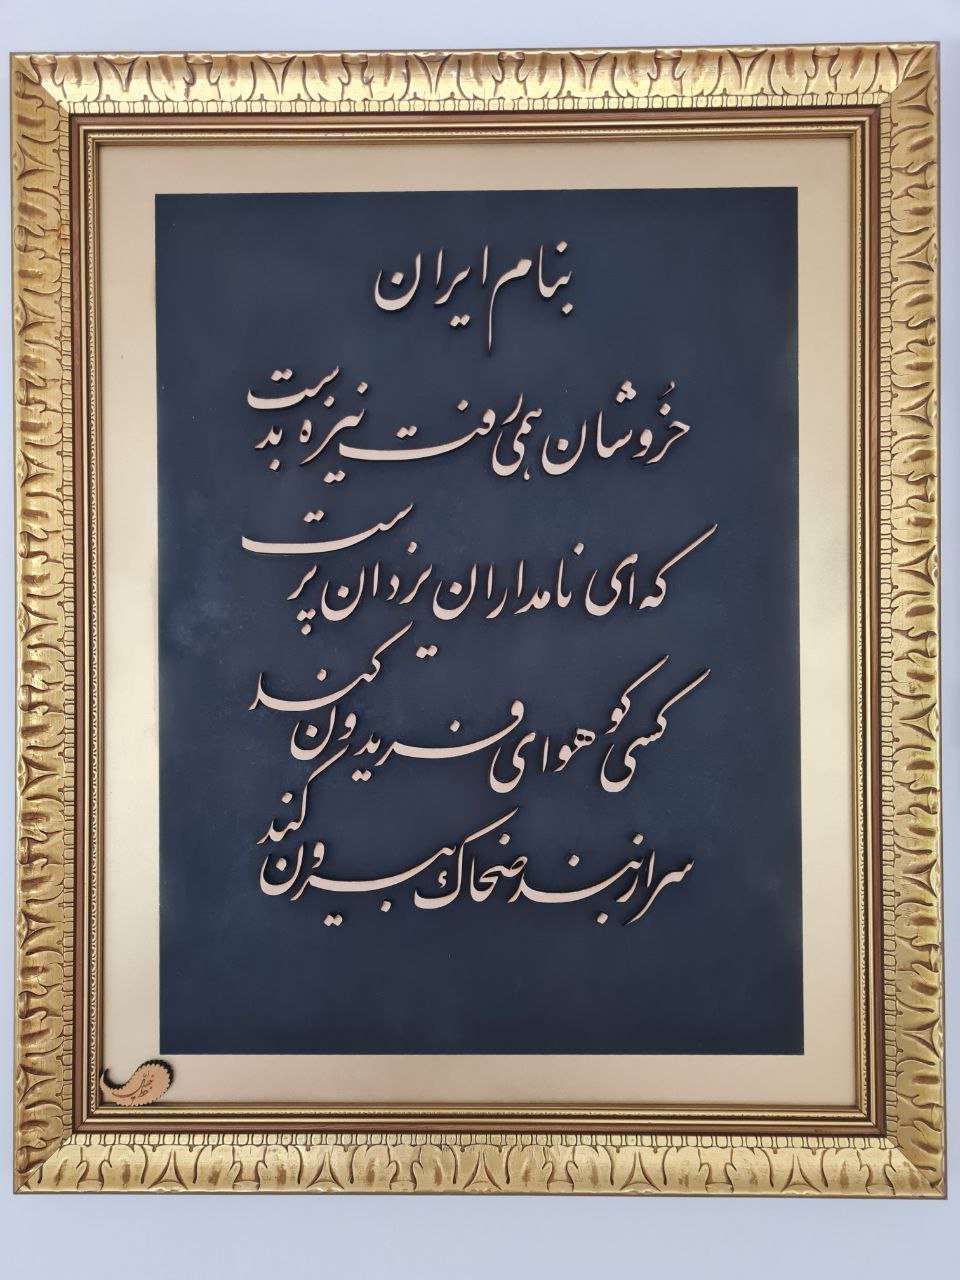 بنام ایران
خُروشان همی رفت نیزه بدست
که ای نامداران یزدان پرست
کسی کو هوای فریدون کند
سر از بند ضحاک بیرون کند